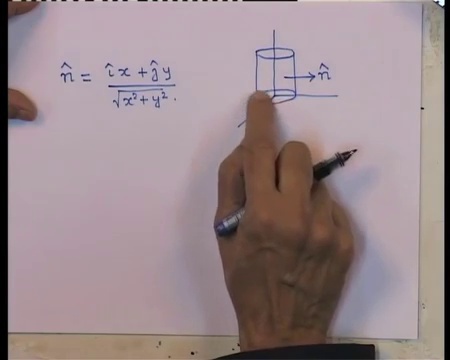 n̂ = (îx + ĵy) / √(x² + y²).
n̂